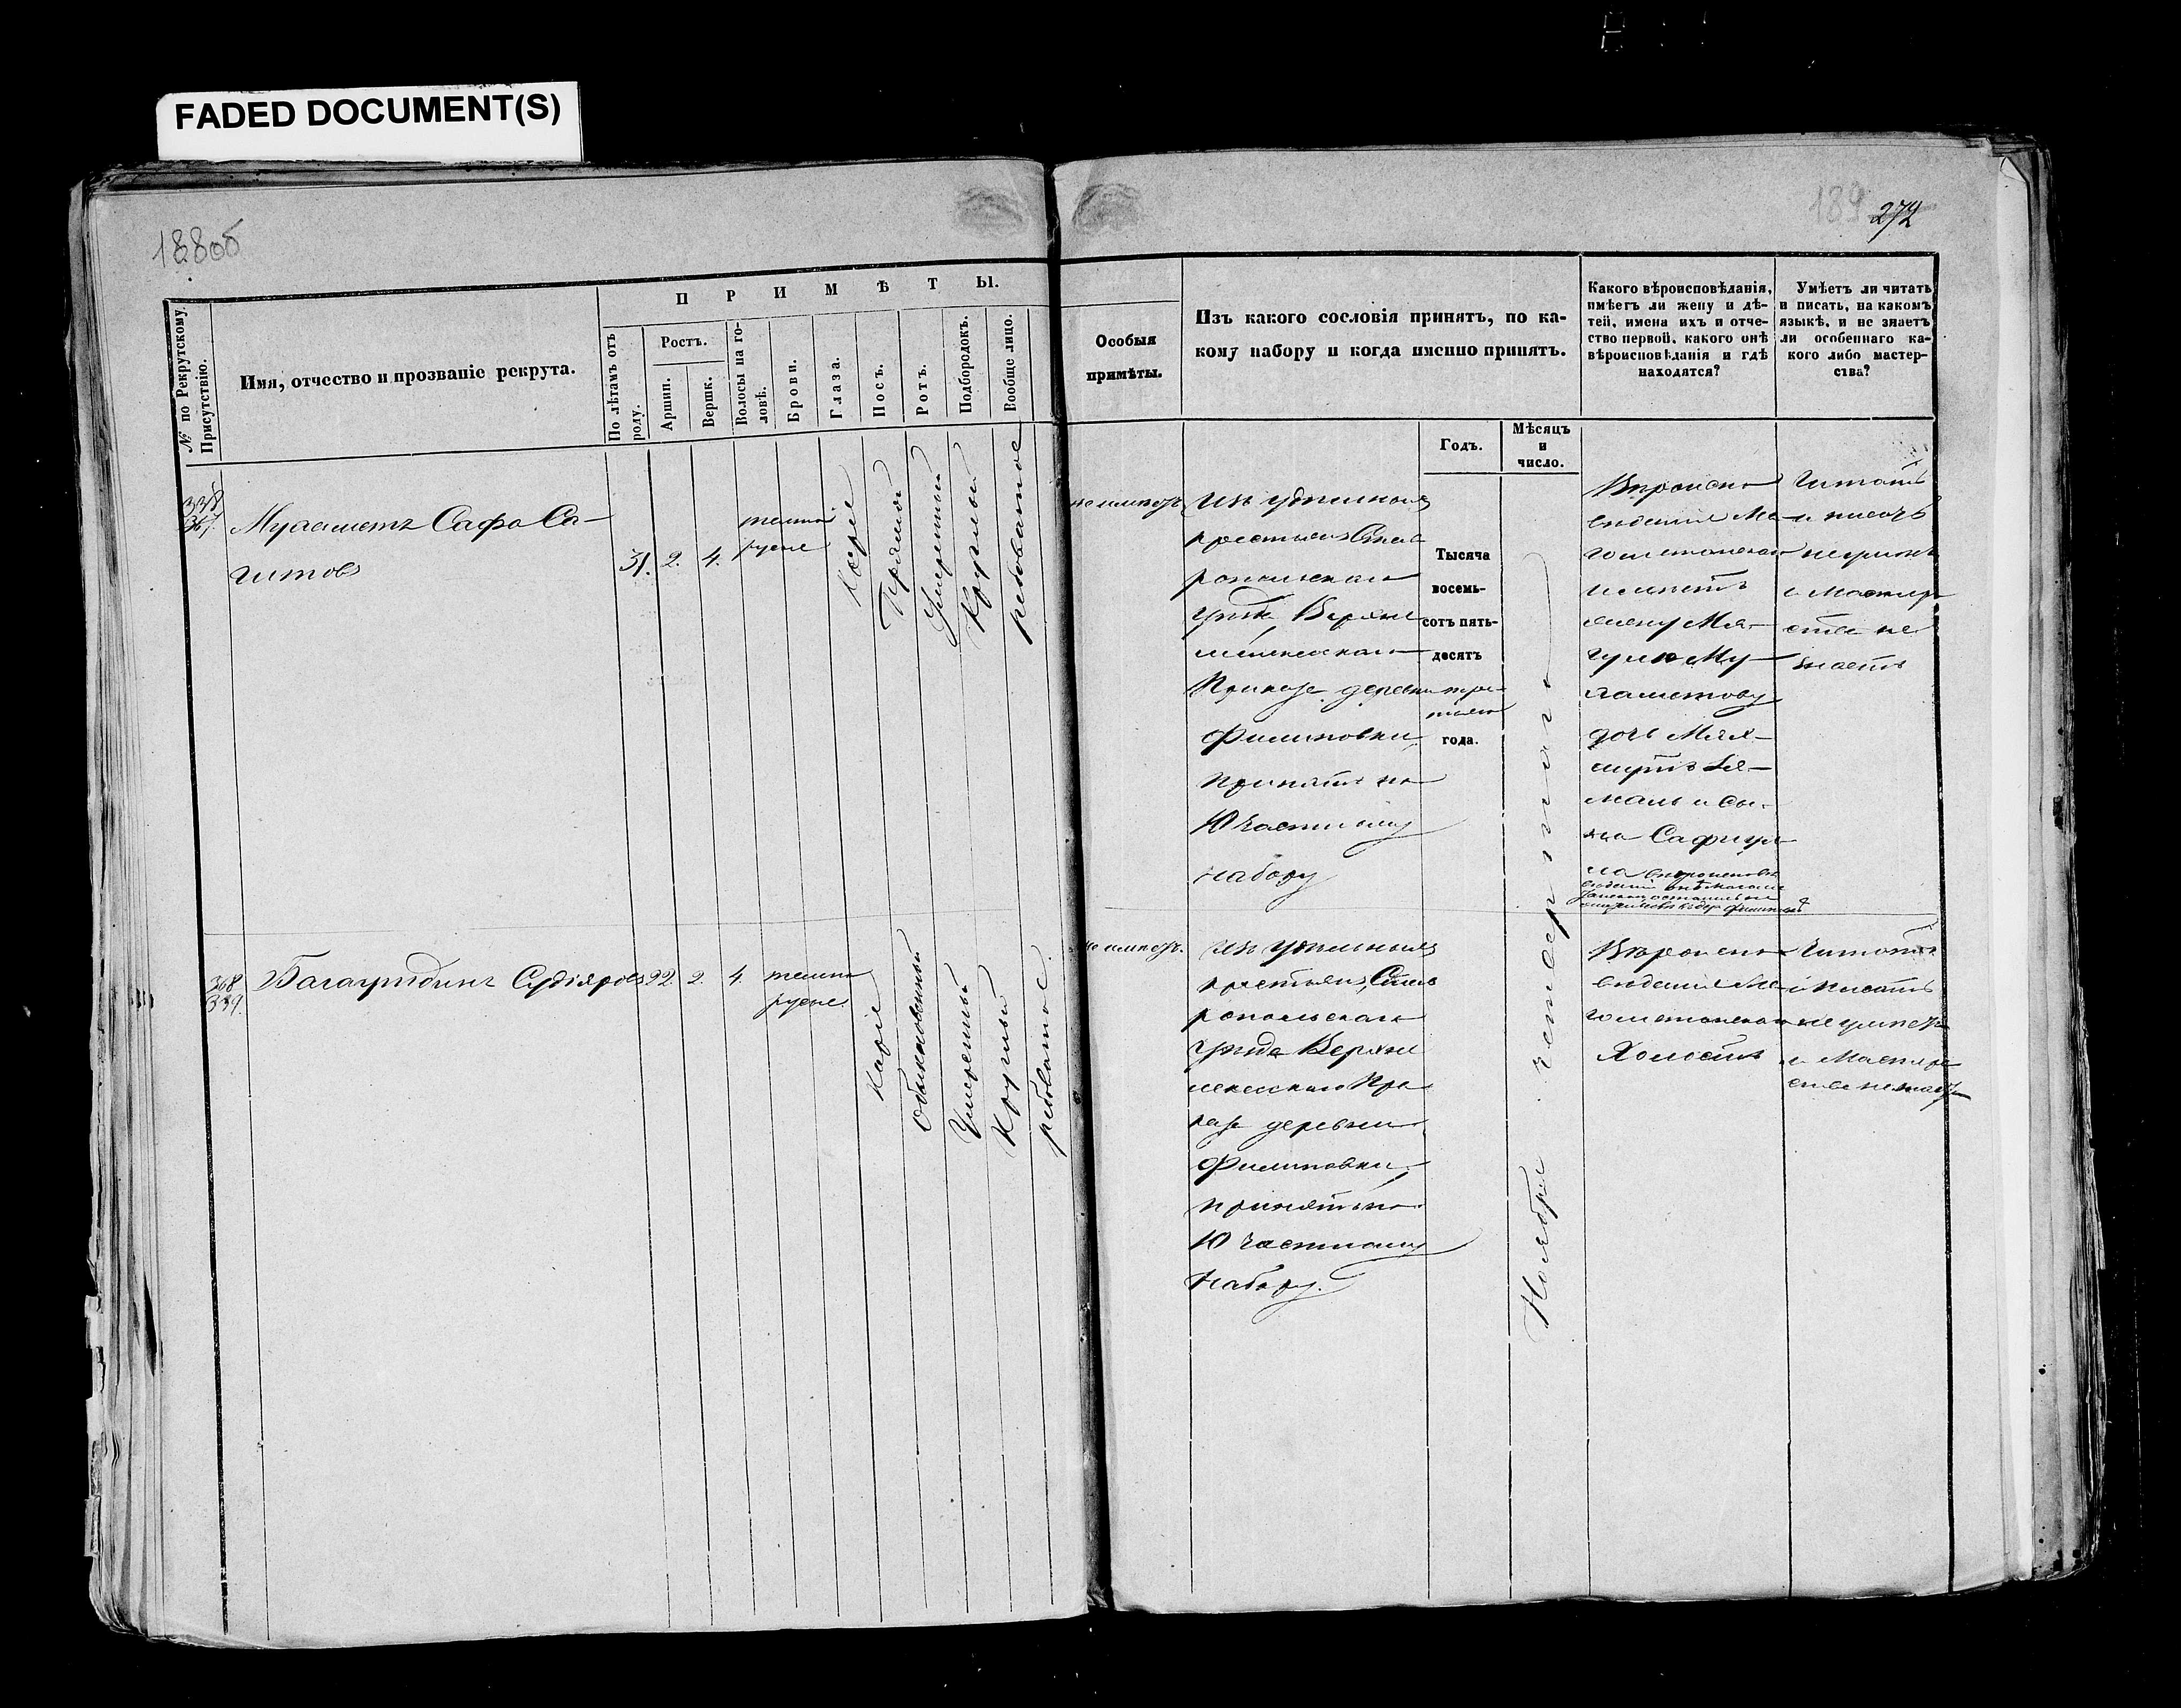 FADED DOCUMENT(S)
188об
189 272
№ по Рекрутскому Присутствію.
Имя, отчество и прозваніе рекрута.
ПРИМѢТЫ.
По лѣтамъ отъ роду.
Ростъ.
Аршин.
Вершк.
Волосы на головѣ.
Брови.
Глаза.
Носъ.
Ротъ.
Подбородокъ.
Вообще лицо.
Особыя
примѣты.
Изъ какого сословія принятъ, по ка-
кому набору и когда именно принятъ.
Годъ.
Мѣсяцъ
и
число.
Какого вѣроисповѣданія,
имѣетъ ли жену и дѣ-
тей, имена ихъ и отче-
ство первой, какого онѣ
вѣроисповѣданія и гдѣ
находятся?
Умѣетъ ли читать
и писать, на какомъ
языкѣ, и не знаетъ
ли особеннаго ка-
кого либо мастер-
ства?
338
367.
Мухаметъ Сафа Са-
гитовъ
31. 2. 4.
темно
русые
Каріе
Прямой
Умеренный
Круглый
рябоватое
не имеетъ
Изъ удельныхъ
крестьянъ Став
ропольскаго
уезда Верхне
Приказа деревни
Филиповки
принятъ по
10 частному
набору
Тысяча
восемь-
сотъ пять-
десятъ
тре-
тьяго
года.
Ноября четвертаго
Вероиспо
веданія Ма-
гометанскаго
имеетъ
жену Ма-
Му-
хаметову
дочь
и сы-
на
Читать
и писать
не умеетъ
и Мастер
ства не
знаетъ
368
339.
Багаутдинъ
22. 2. 4.
темно
русые
Каріе
Обыкновенный
Умеренный
Круглый
рябоватое
не имеетъ.
Изъ удельныхъ
крестьянъ, Став
ропольскаго
уезда Верхне
При
каза деревни
Филиповки,
принятъ по
10 частному
набору.
Вероиспо
веданія Ма-
гометанскаго
Холостъ
Читать
и писать
не умеетъ
и Мастер
ства не знаетъ